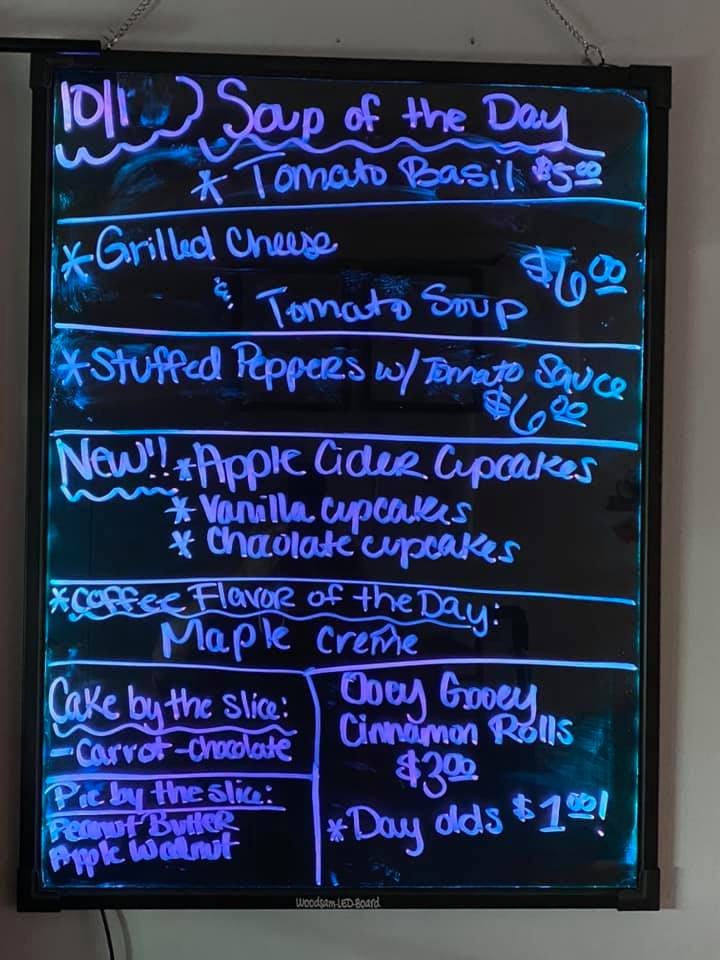 10/1 Soup of the Day
* Tomato Basil $5.00
* Grilled Cheese
& Tomato Soup $6.00
* Stuffed Peppers w/ Tomato Sauce
$6.00
New"! * Apple Cider Cupcakes
* Vanilla cupcakes
* Chaolate cupcakes
* Coffee Flavor of the Day:
Maple Creme
Cake by the slice:
- Carrot - Chocolate
Pie by the slice:
Peanut Butter
Apple Walnut
Ooey Gooey
Cinnamon Rolls
$3.00
* Day olds $1.00!
Woodsam-LED-Board